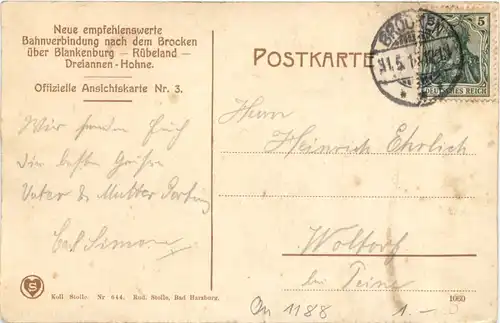 Neue empfehlenswerte
Bahnverbindung nach dem Brocken
über Blankenburg — Rübeland —
Dreiannen-Hohne.
Offizielle Ansichtskarte Nr. 3.
POSTKARTE
BROCKEN
5
DEUTSCHES REICH
Wir senden Euch
die besten Grüße
Vater & Mutter
bei
Herrn
Heinrich Ehrlich
Woltorf
bei Peine
S
Koll Stolle. Nr 644. Rud. Stolle, Bad Harzburg.
1060
1188
1.-